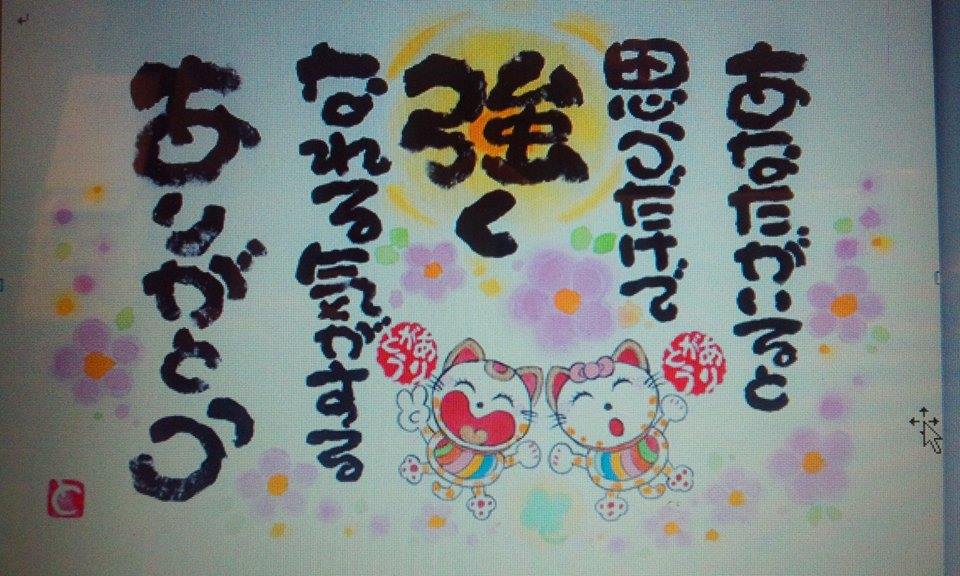 あなたがいると
思うだけで
強く
なれる気がする
ありがとう
ありがとう
ありがとう